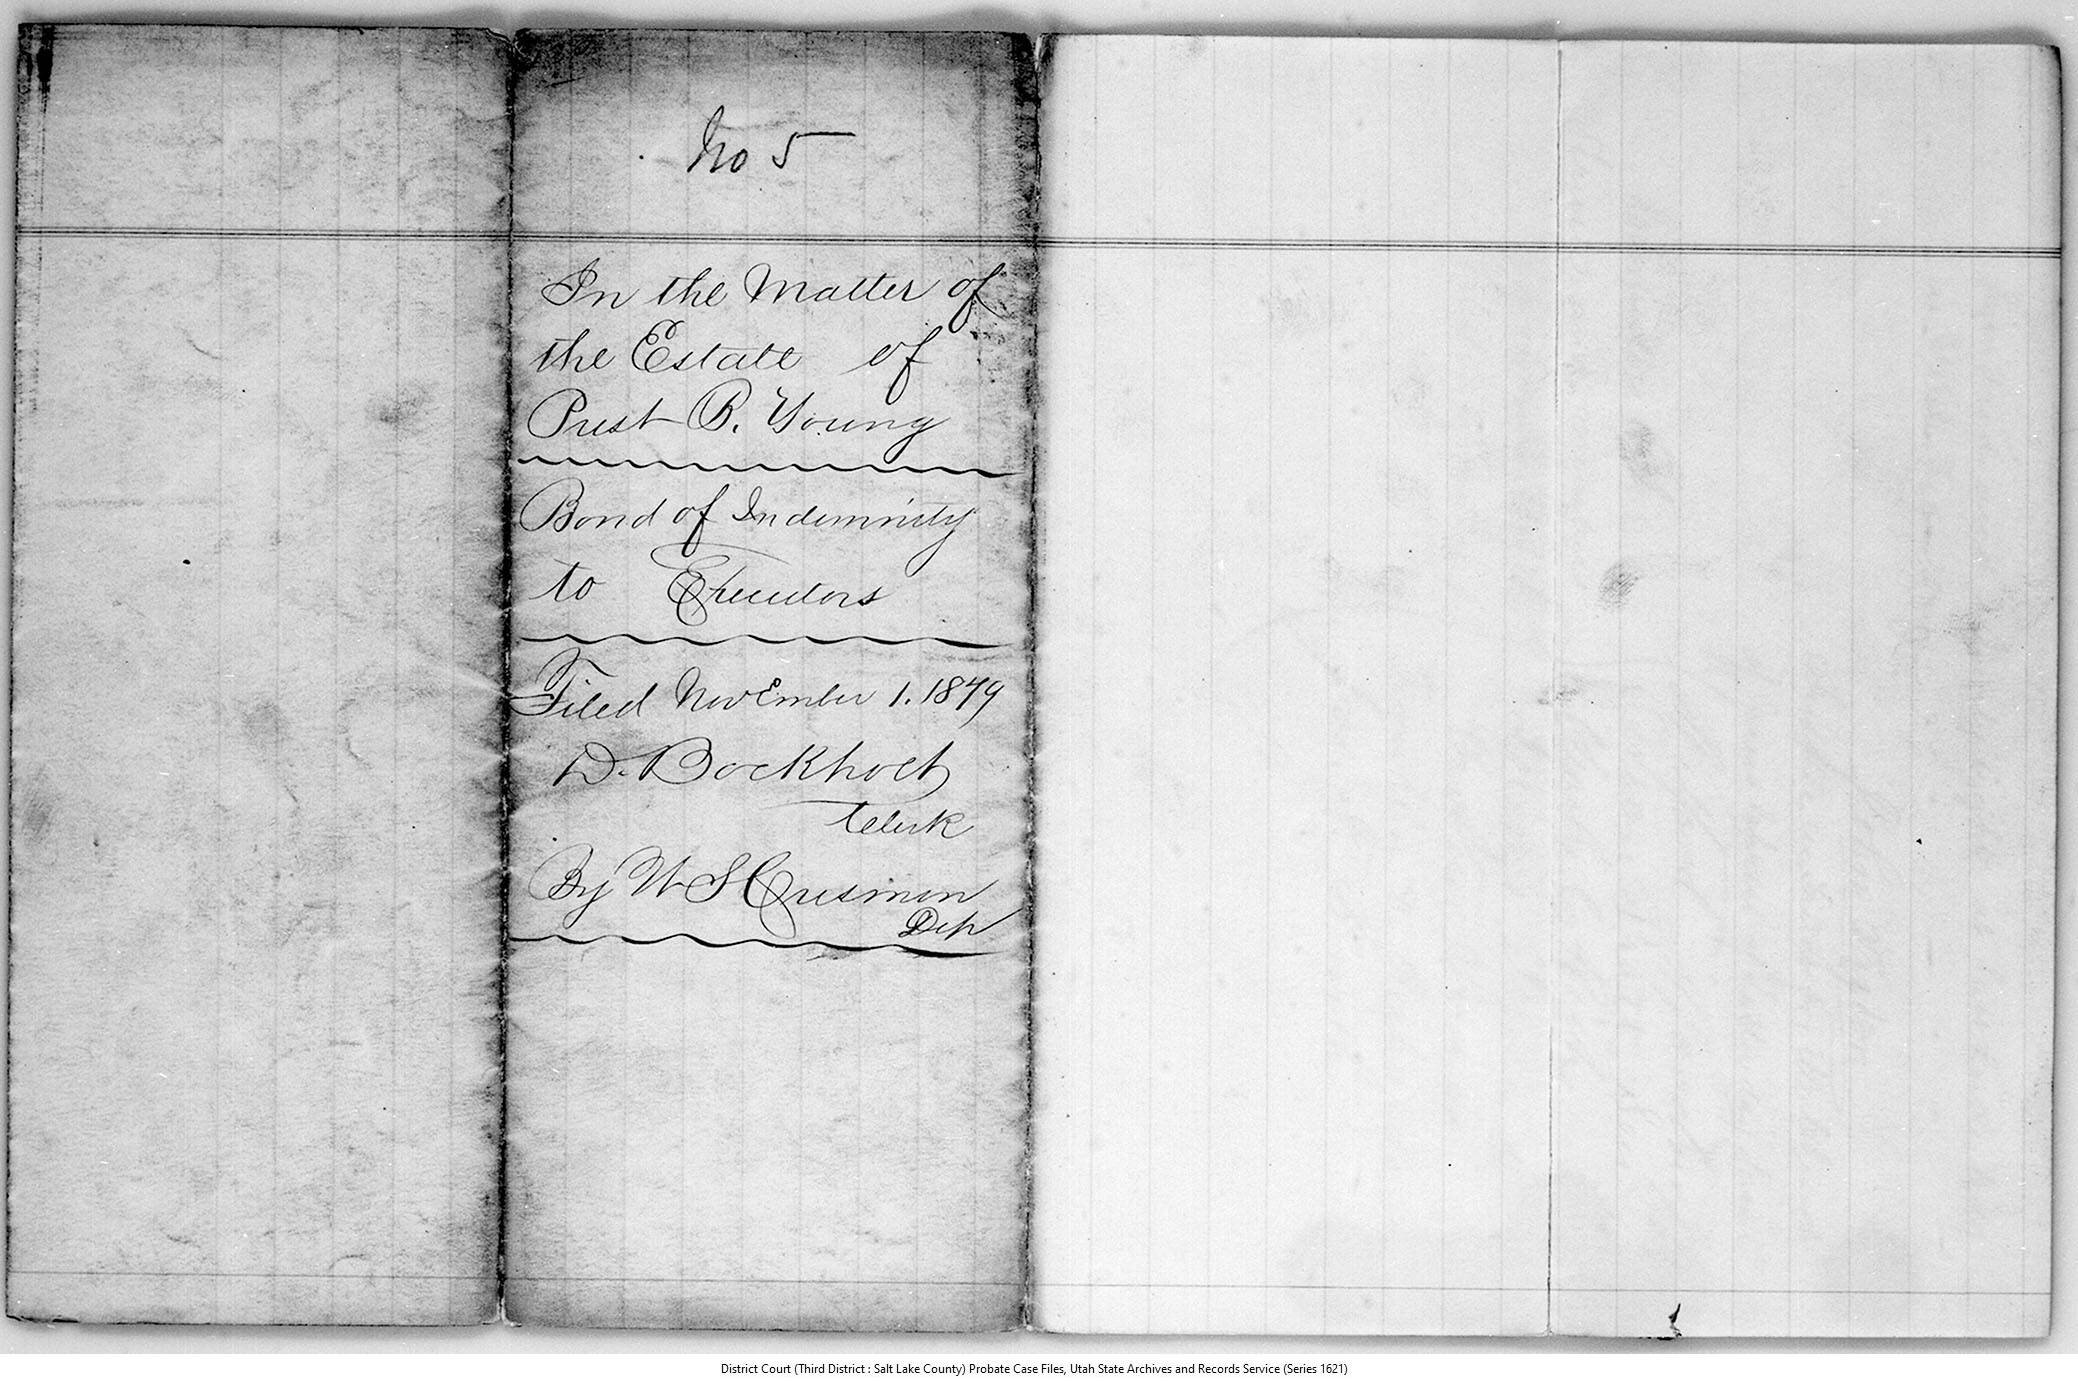 No 5
In the Matter of
the Estate of
Prest B. Young
Bond of Indemnity
to Executors
Filed November 1. 1879
D. Bockholt
Clerk
By W S Crismon
Dep
District Court (Third District : Salt Lake County) Probate Case Files, Utah State Archives and Records Service (Series 1621)